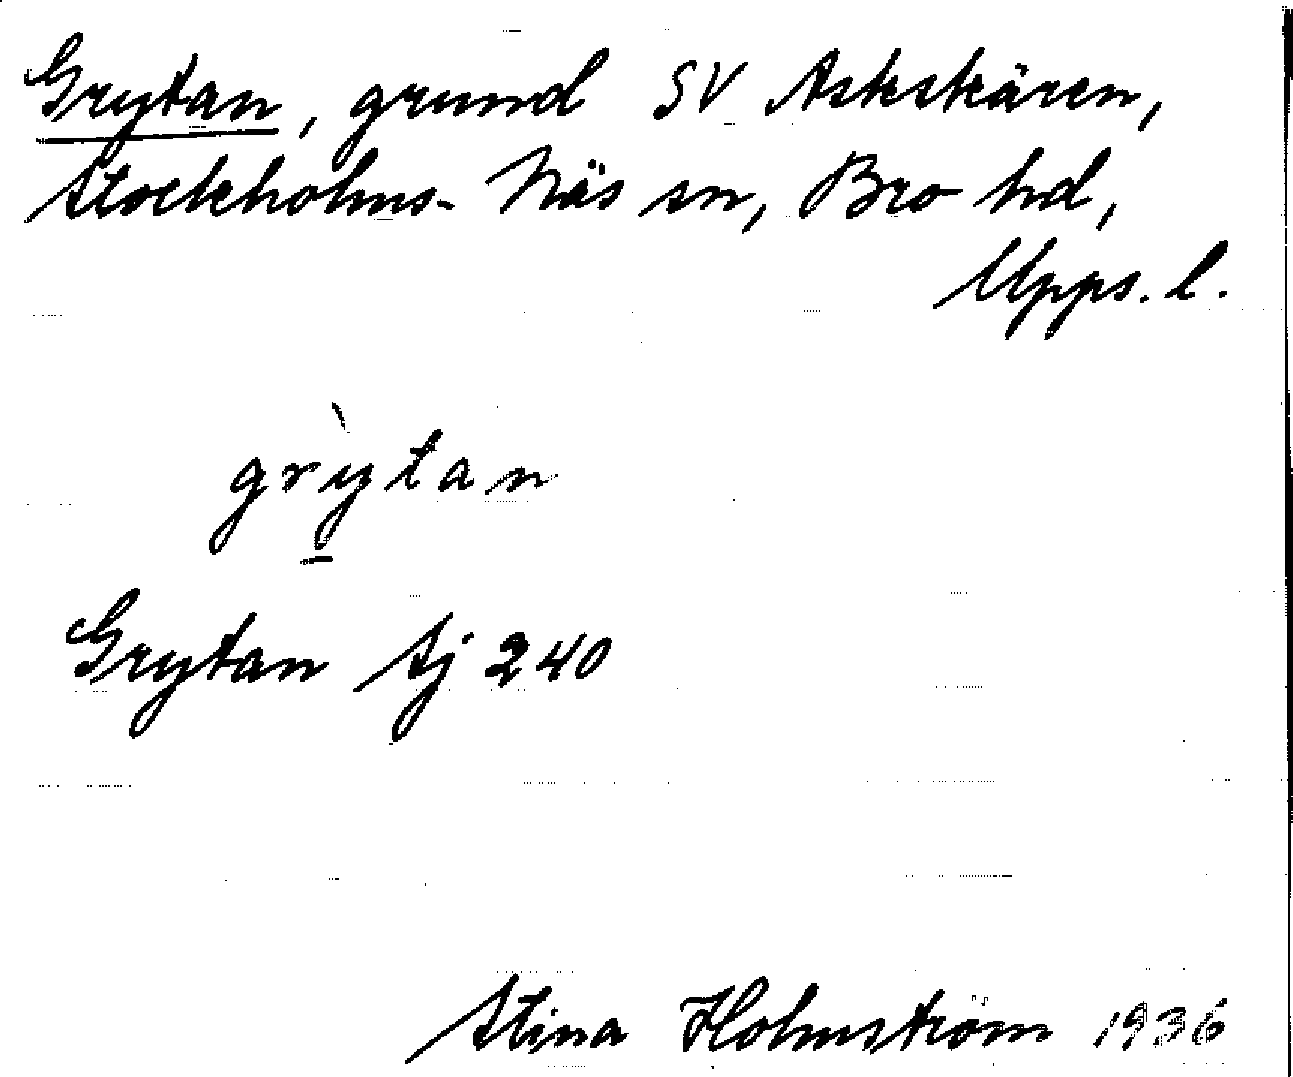 Grytan, grund SV Askskären,
Stockholms-Näs sn, Bro hd,
Upps. l.
grỳ̠tan
Grytan Sj 240
Stina Holmström 1936